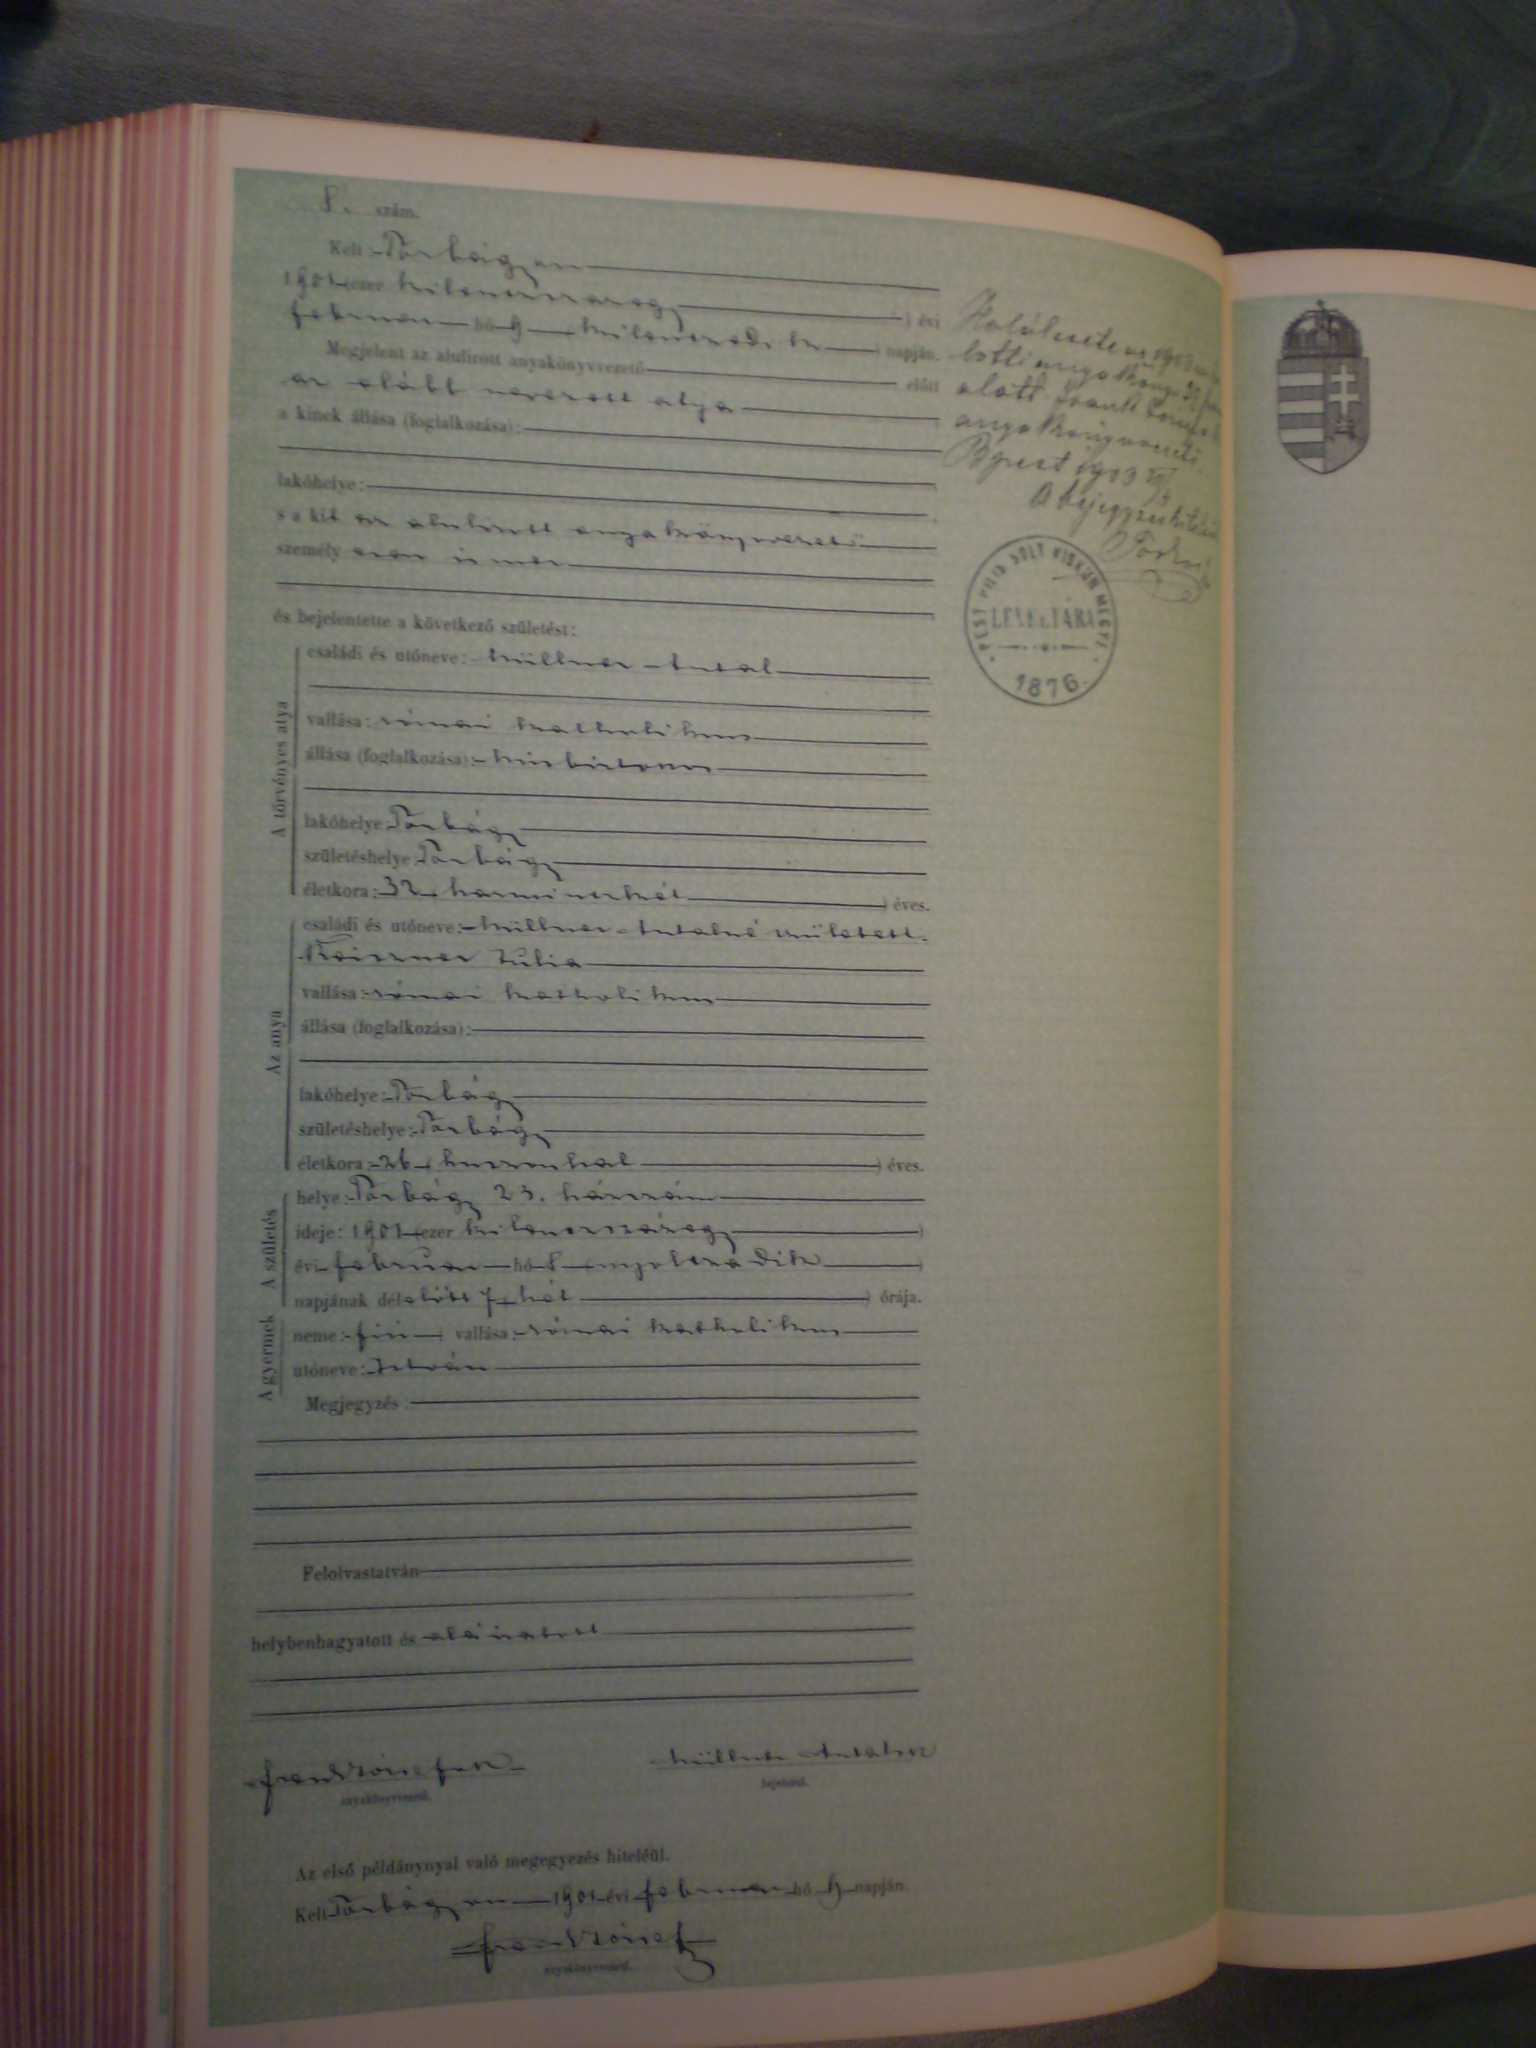 8. szám.
Kelt: Torbágyon
1901 (ezer kilenczszázegy ) évi
február hó 9 (kilenczedik ) napján.
Megjelent az alulirott anyakönyvvezető előtt
az alább nevezett atya
a kinek állása (foglalkozása):
lakóhelye:
s a kit az alulirott anyakönyvvezető
személy esen ismer
és bejelentette a következő születést:
A törvényes atya
családi és utóneve: Müllner Antal
vallása: római katholikus
állása (foglalkozása): kisbirtokos
lakóhelye: Torbágy
születéshelye: Torbágy
életkora: 32 (harminczkét ) éves.
Az anya
családi és utóneve: Müllner Antalné született
Julia
vallása: római katholikus
állása (foglalkozása):
lakóhelye: Torbágy
születéshelye: Torbágy
életkora: 26 (huszonhat ) éves.
A születés
helye: Torbágy 23. házszám
ideje: 1901 (ezer kilenczszázegy )
évi február hó 8 (nyolczadik )
napjának délelőtt 7 (hét ) órája.
A gyermek
neme: fiú ; vallása: római katholikus
utóneve: István
Megjegyzés:
Felolvastatván
helybenhagyatott és aláiratott
anyakönyvvezető.
Müllner Antal
bejelentő.
Az első példánynyal való megegyezés hiteléül.
Kelt Torbágyon 1901 évi február hó 9 napján.
anyakönyvvezető.
alatt
anyakönyvvezető
Bpest 1903
A bejegyzés
PEST PILIS SOLT KISKUN MEGYE
LEVELTÁRA
1876.